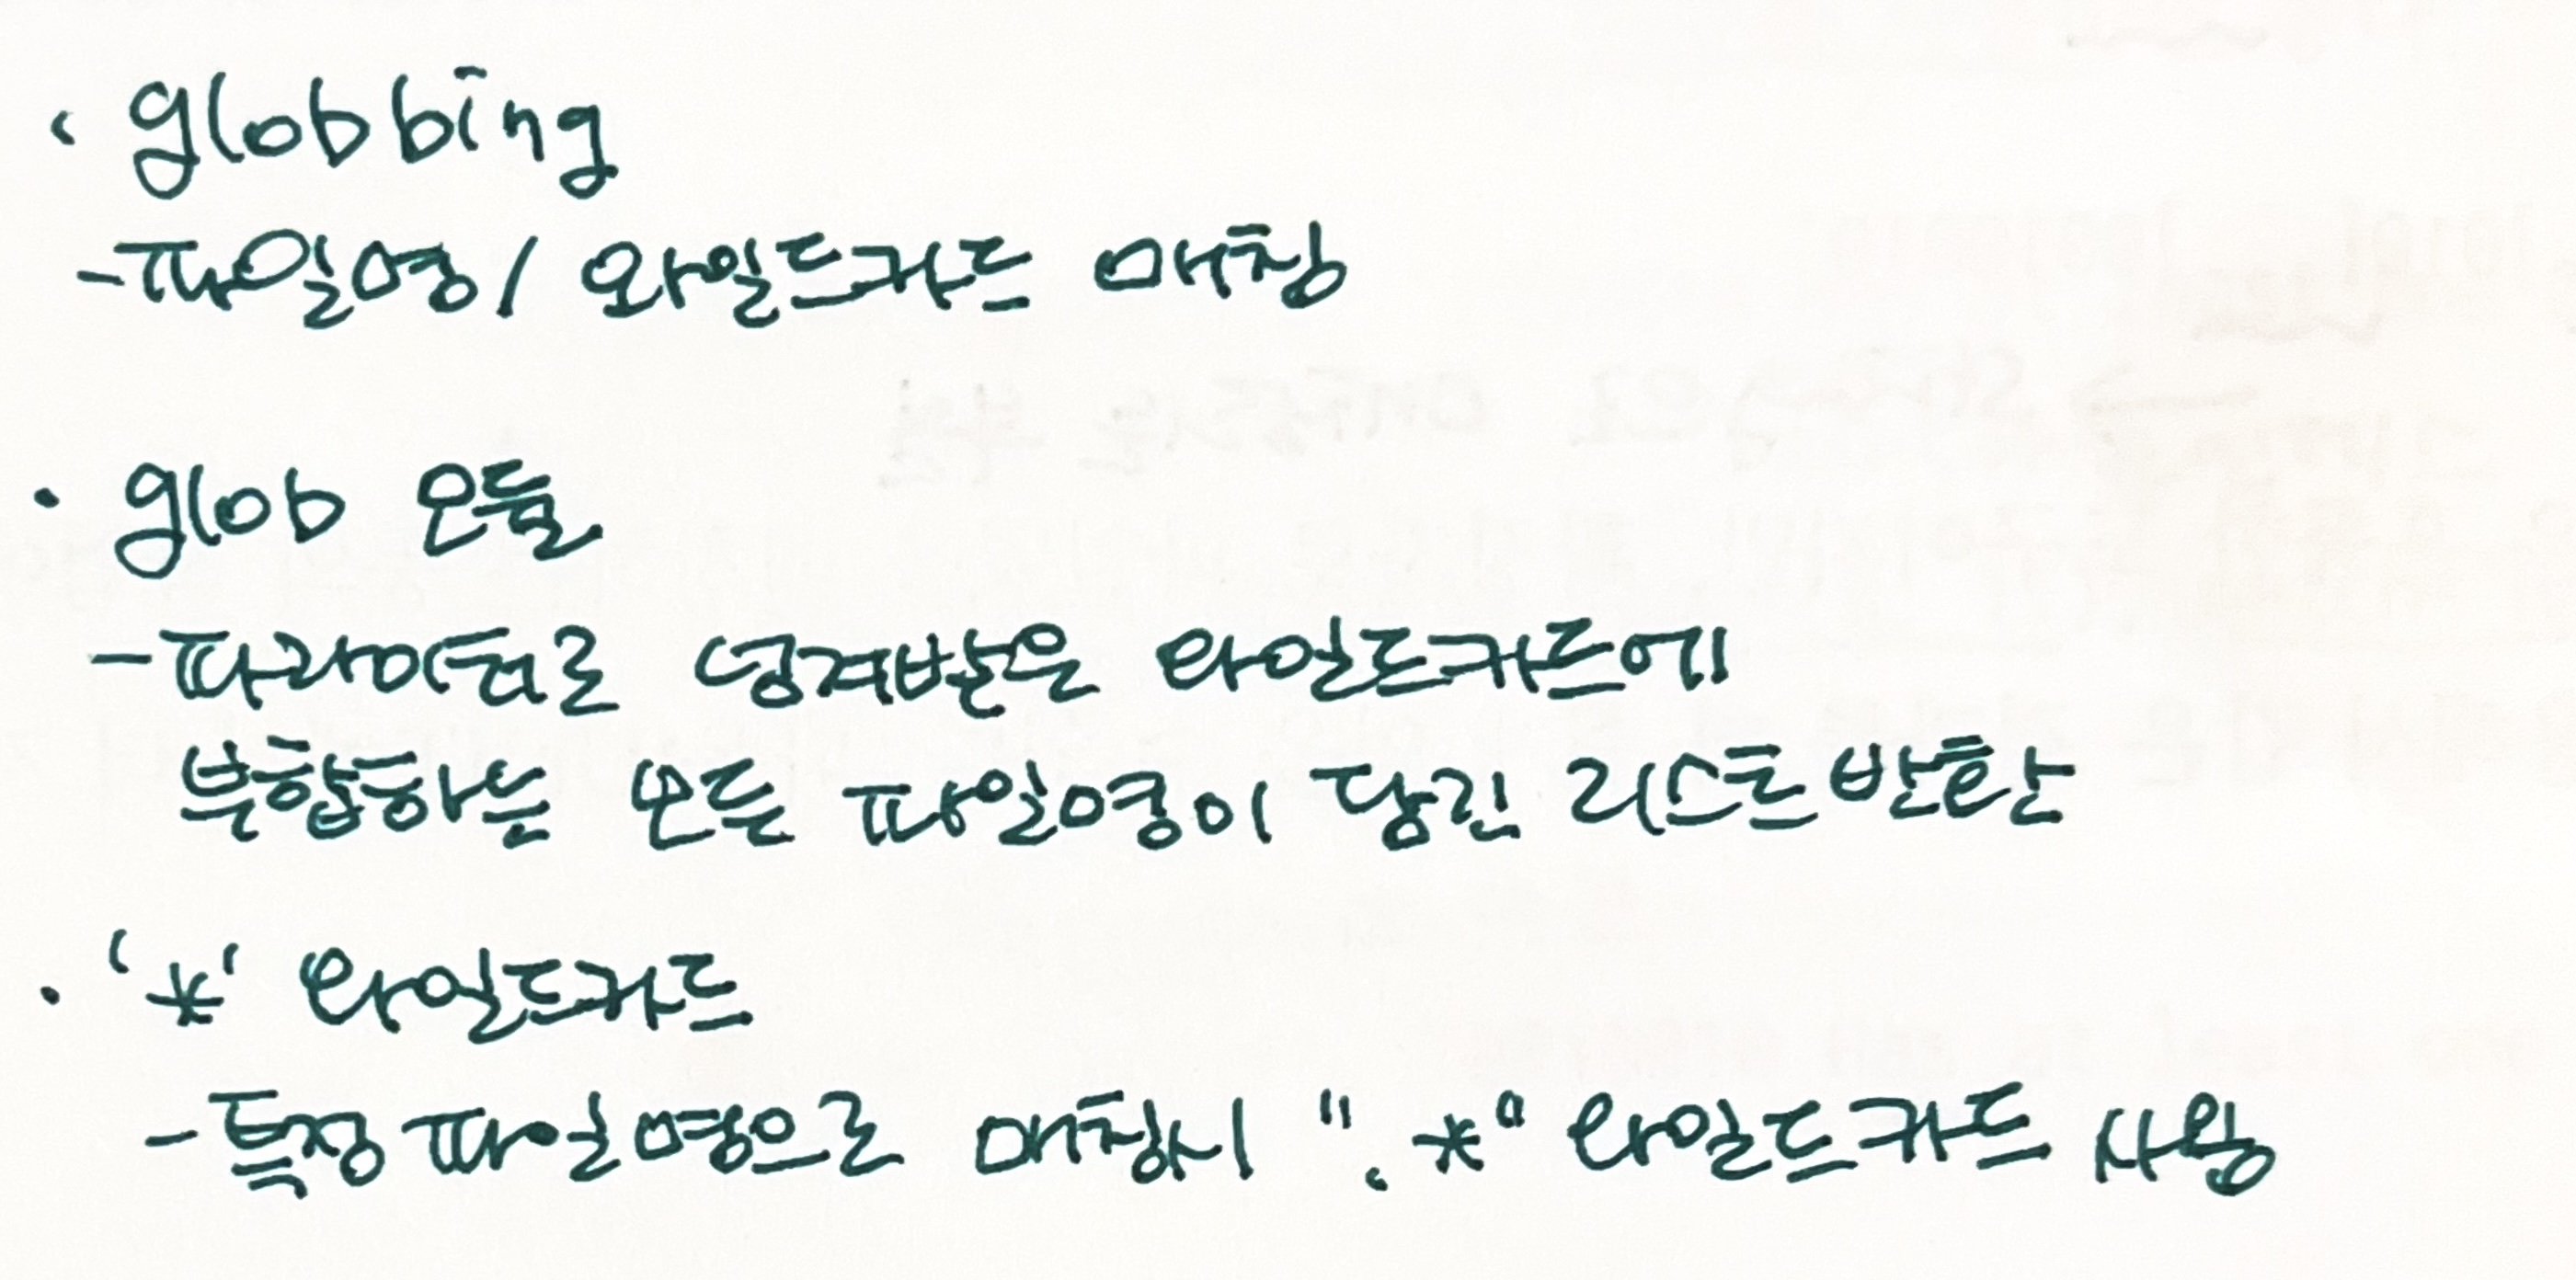 · globbing
- 파일명/ 와일드카드 매칭
· glob 모듈
- 파라미터로 넘겨받은 와일드카드에
부합하는 모든 파일명이 담긴 리스트 반환
· '*' 와일드카드
- 특정 파일명으로 매칭시 ".*" 와일드카드 사용